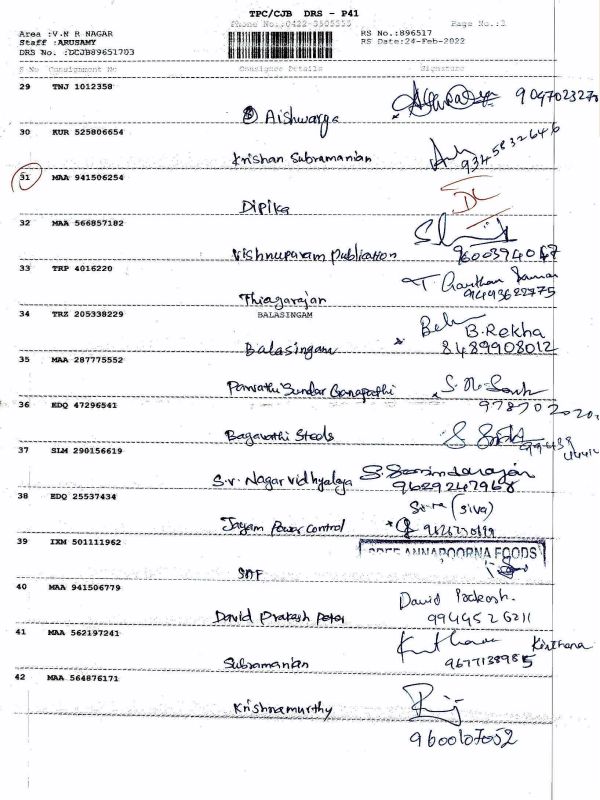 TPC/CJB DRS - P41
Phone No.:0422-3505555 Page No.:3
Area :V.N R NAGAR RS No.:896517
Staff :ARUSAMY RS Date:24-Feb-2022
DRS No. :DCJB89651703
S No Consignment No Consignee Details Signature
29 TNJ 1012358
Aishwarya 9047023270
30 KUR 525806654
Krishan Subramanian 9345832646
31 MAA 941506254
Dipika DL
32 MAA 566857182
Vishnupuram Publication 9600394047
33 TRP 4016220
Thiagarajan 9493622775
BALASINGAM
34 TRZ 205338229
Balasingam B.Rekha
8489908012
35 MAA 287775552
Sundar Ganapathi
36 EDQ 47296541
Bagavathi Steels
37 SLM 290156619
S.V. Nagar Vidhyalya
9629247968
38 EDQ 25537434
(Siva)
Jayam Power Control
39 IXM 501111962
SREE ANNAPOORNA FOODS
40 MAA 941506779
David
David Prakash Peter 9944526211
41 MAA 562197241
Kirthana
Subramanian 9677138985
42 MAA 564876171
Krishnamurthy
9600107052